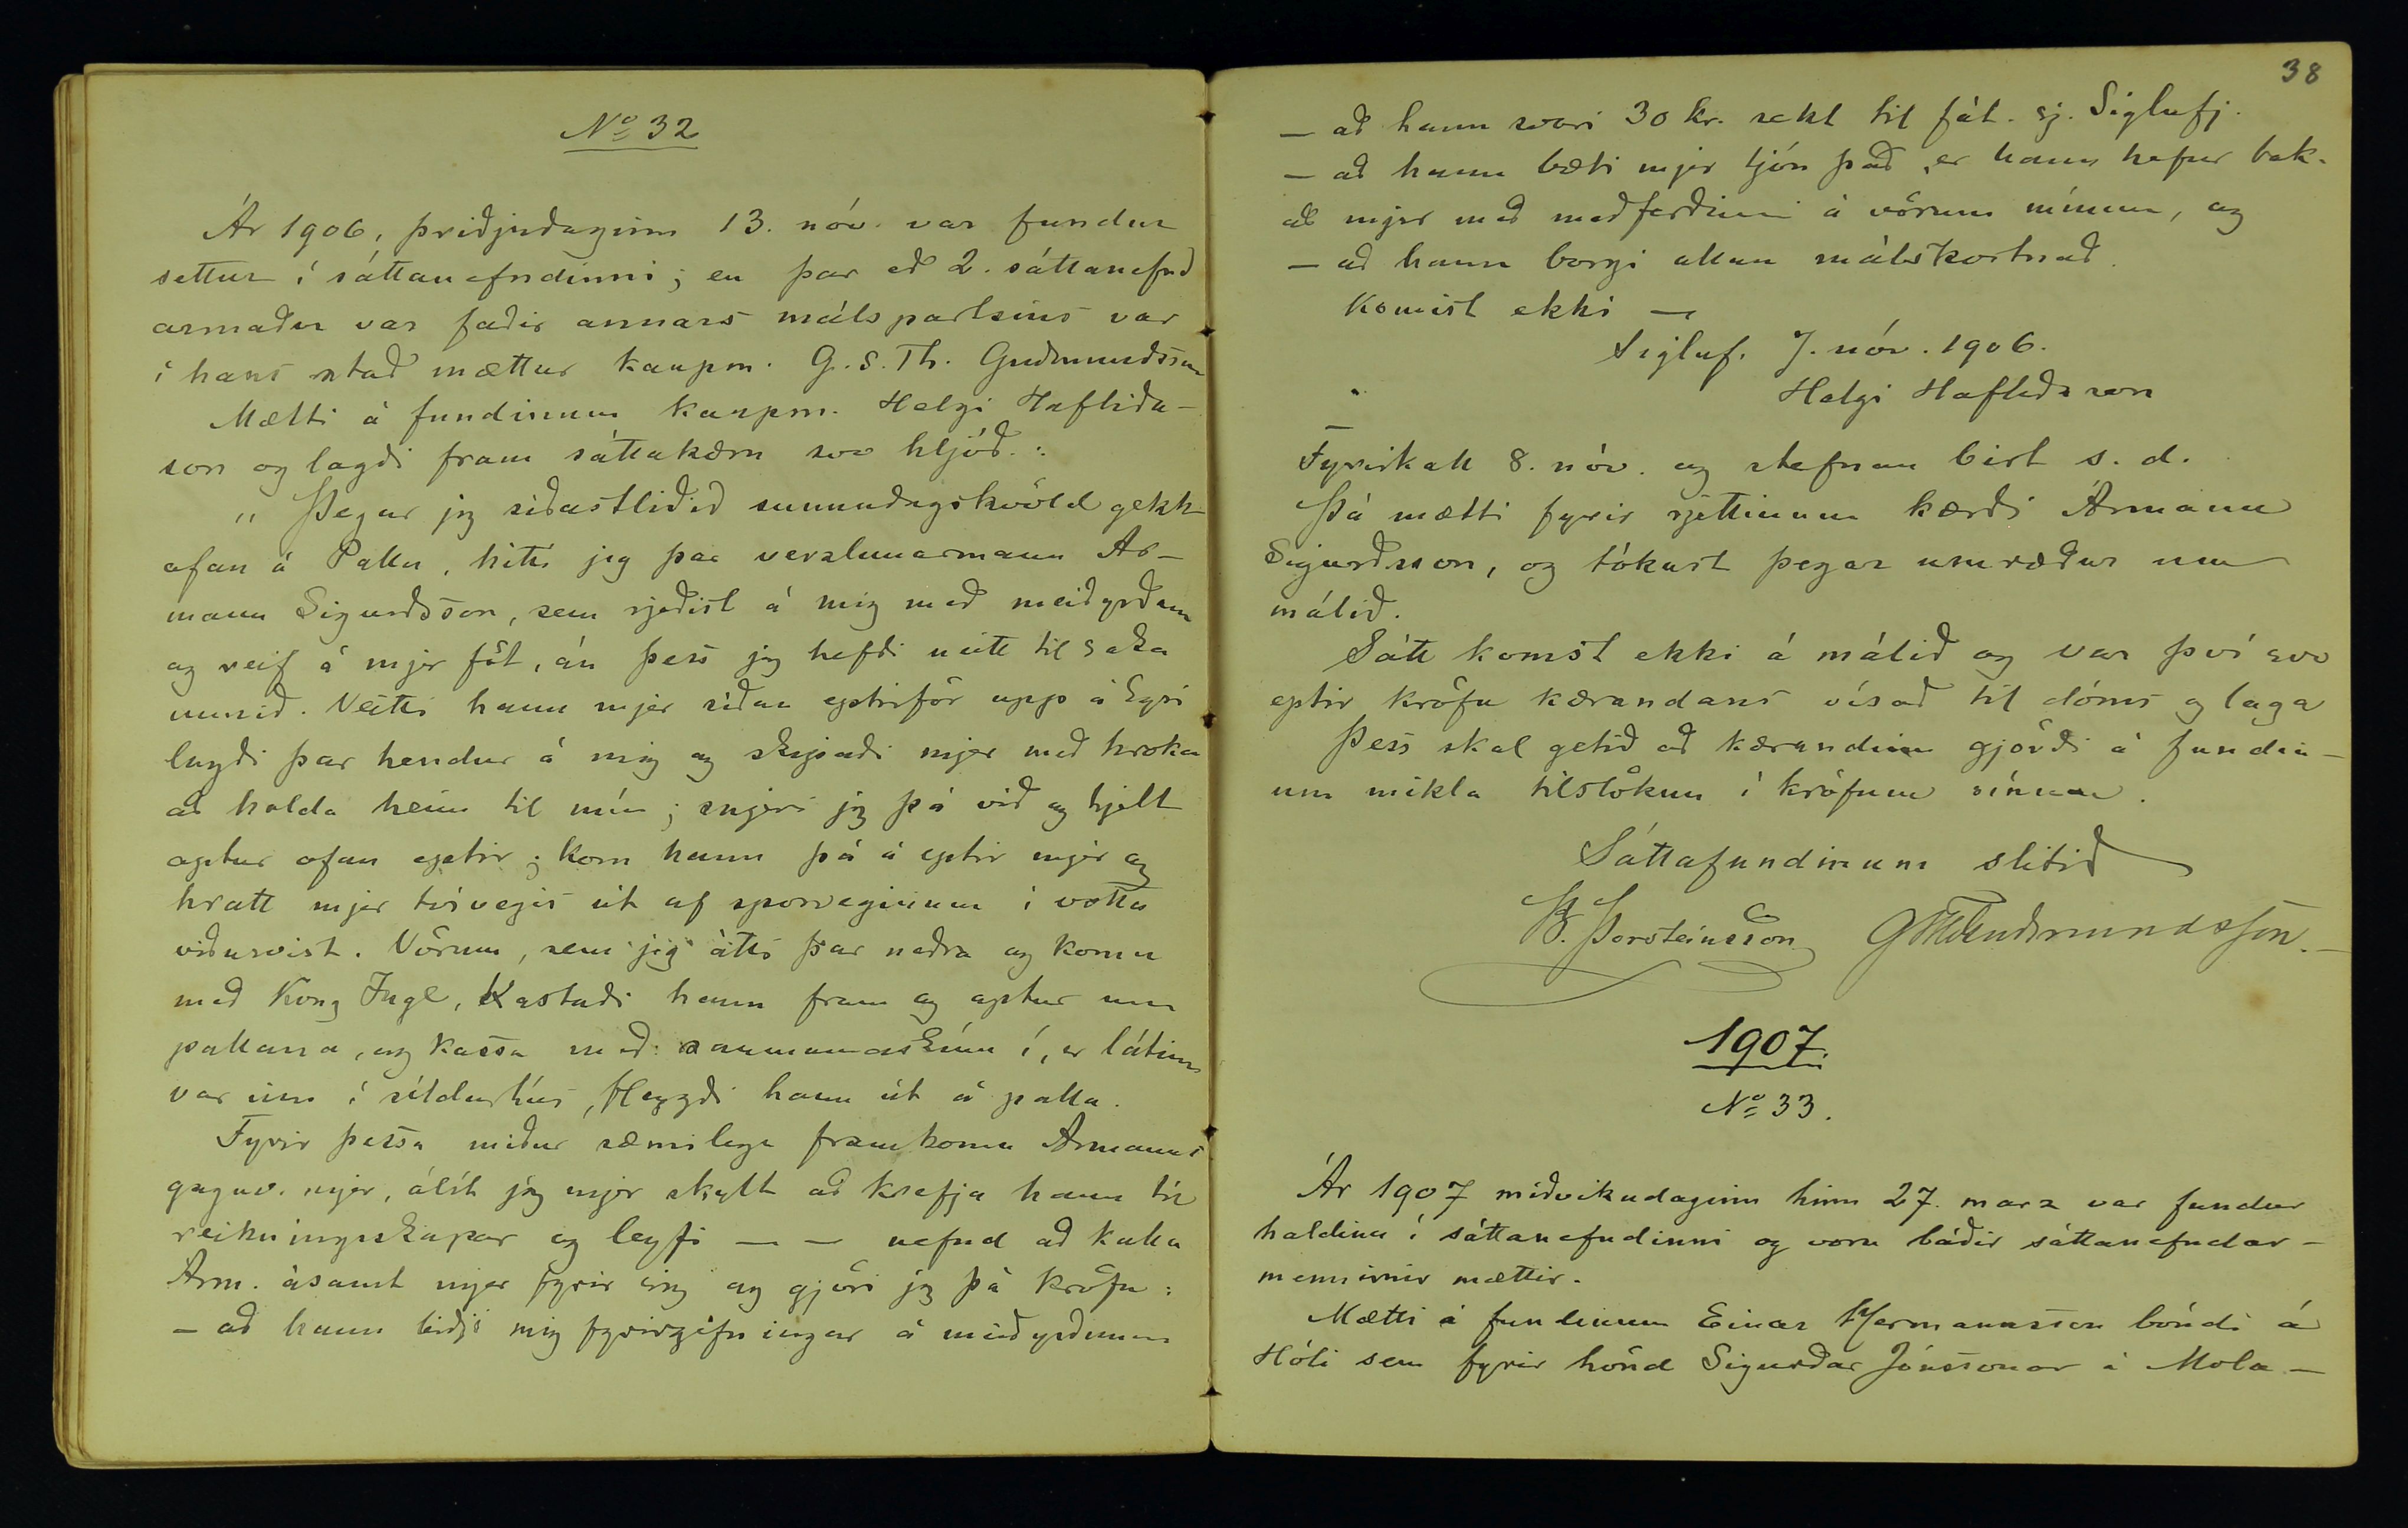 No 32
Ár 1906, þriðjudaginn 13. nóv. var fundur
settur í sáttanefndinni; en þar eð 2. sáttanefnd
armaður var faðir annars málspartsins var
í hans stað mættur kaupm. G. S. Th. Guðmundsson
Mætti á fundinum kaupm. Helgi Hafliða-
son og lagði fram sáttakæru svo hljóð.:
„Þegar jeg síðastliðið sunnudagskvöld gekk
ofan á Palla, hitti jeg þar verzlunarmann Ar-
mann Sigurðsson, sem rjeðist á mig með meiðyrðum
og reif á mjer föt, án þess jeg hefði neitt til saka
unnið. Veitti hann mjer síðan eptirför upp á Eyri
lagði þar hendur á mig og skipaði mjer með hroka
að halda heim til mín; snjeri jeg þá við og hjelt
aptur ofan eptir; kom hann þá á eptir mjer og
hratt mjer tvívegis út af sporveginum í votta
viðurvist. Vörum, sem jeg átti þar neðra og komu
með Kong Inge, kastaði hann fram og aptur um
pallana, og kassa með saumamaskínu í, er látinn
var inn í síldarhús, fleygði hann út á palla.
Fyrir þessa miður sæmilega framkomu Armanns
gagnv. mjer, álít jeg mjer skylt að krefja hann til
reikningsskapar og leyfi — — nefnd að kalla
Arm. ásamt mjer fyrir sig og gjöri jeg þá kröfu:
- að hann biðji mig fyrirgefningar á meiðyrðunum
38
- að hann svari 30 kr. sekt til fát. sj. Siglufj.
- að hann bæti mjer tjón það, er hann hefur bak-
að mjer með meðferðinni á vörum mínum, og
- að hann borgi allan málskostnað.
Komist ekki —
Sigluf. 7. nóv. 1906.
Helgi Hafliðason
Fyrirkall 8. nóv. og stefnan birt s. d.
Þá mætti fyrir rjettinum kærði Ármann
Sigurðsson, og tókust þegar umræður um
málið.
Sátt komst ekki á málið og var því svo
eptir kröfu kærandans vísað til dóms og laga
Þess skal getið að kærandinn gjörði á fundin-
um mikla tilslökun í kröfum sínum.
Sáttafundinum slitið
B. Þorsteinsson GThGuðmundsson.
1907.
No 33.
Ár 1907 miðvikudaginn hinn 27. marz var fundur
haldinn í sáttanefndinni og voru báðir sáttanefndar-
mennirnir mættir.
Mætti á fundinum Einar Hermannsson bóndi á
Hóli sem fyrir hönd Sigurðar Jónssonar á Mola-